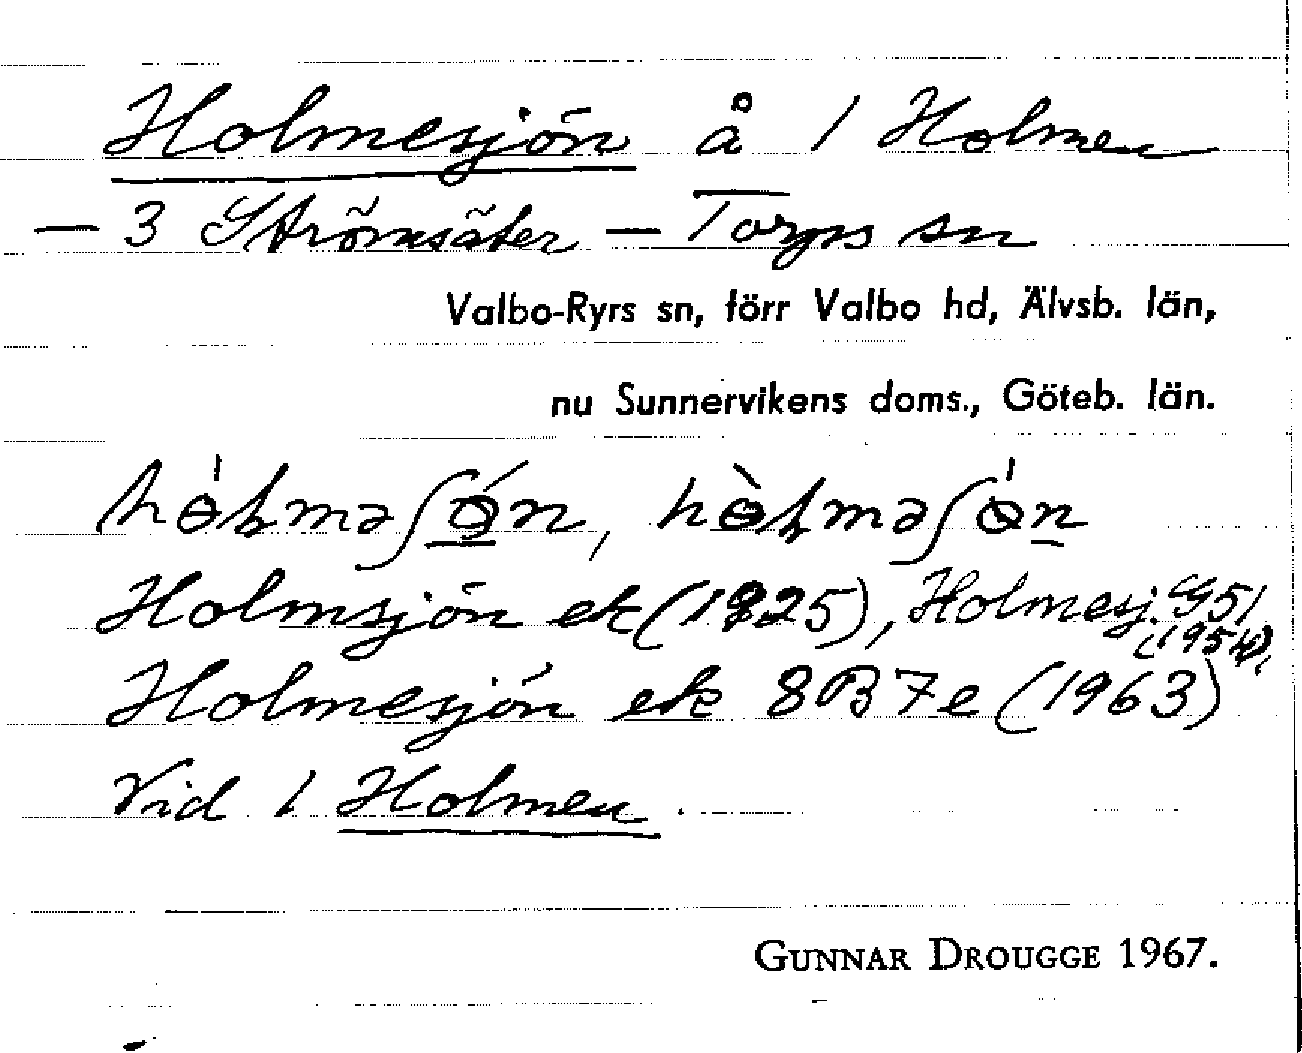 Holmesjön å 1 Holmen
– 3 Strömsäter – Torps sn
Valbo-Ryrs sn, förr Valbo hd, Älvsb. län,
nu Sunnervikens doms., Göteb. län.
Holmsjön ek (1825), Holmesj. G51
(1954),
Holmesjön ek 8B7e (1963)
Vid 1 Holmen.
GUNNAR DROUGGE 1967.